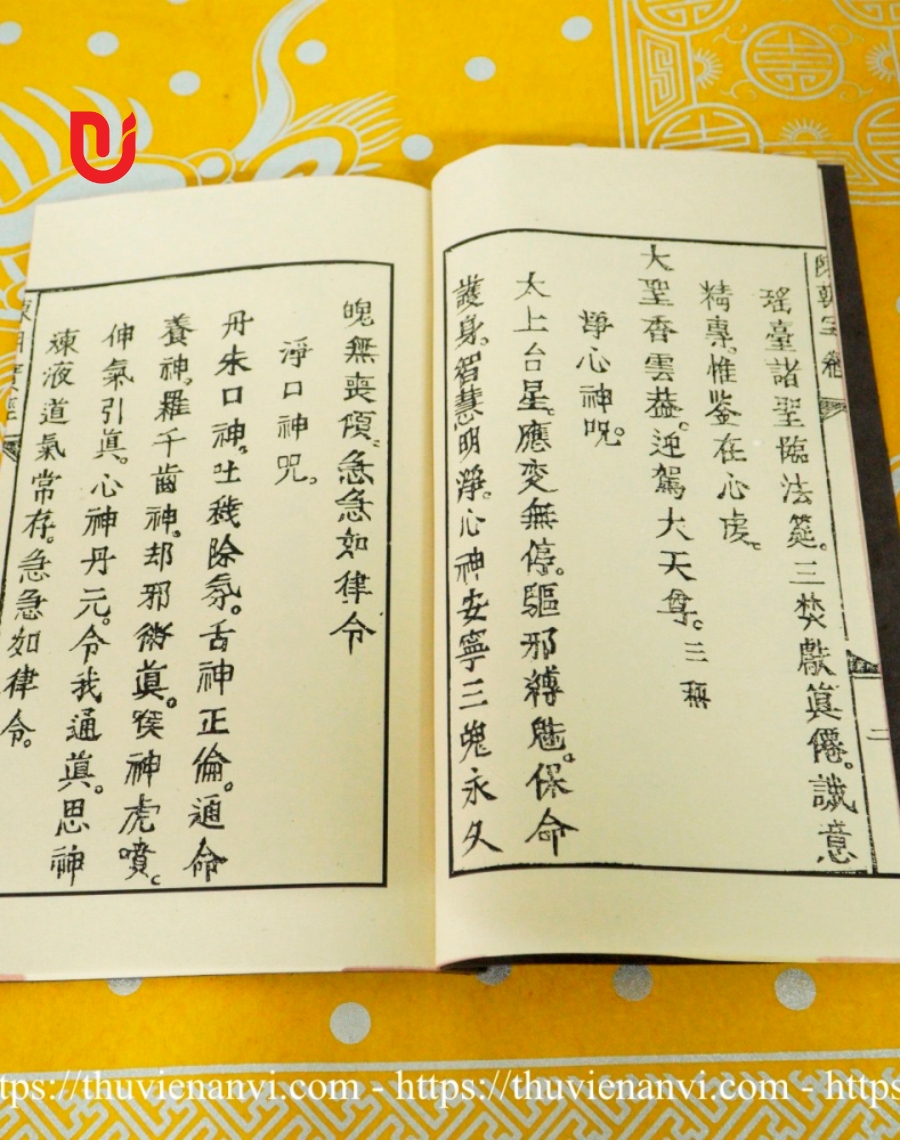 瑤臺諸聖臨法筵。三焚獻眞僊。誠意
精專。惟鉴在心虔。
大聖香雲葢。迎駕大天尊。三稱
淨心神咒。
太上台星。應变無停。驅邪縛魅。保命
護身。智慧明淨。心神安寧三魂永久
二
魄無喪傾。急急如律令
淨口神咒。
丹朱口神。吐穢除氛。舌神正倫。通命
養神。羅千齒神。却邪衛眞。喉神虎噴。
伸氣引眞。心神丹元。令我通眞。思神
煉液道氣常存。急急如律令。
ttps://thuvienanvi.com - https://thuvienanvi.com - https